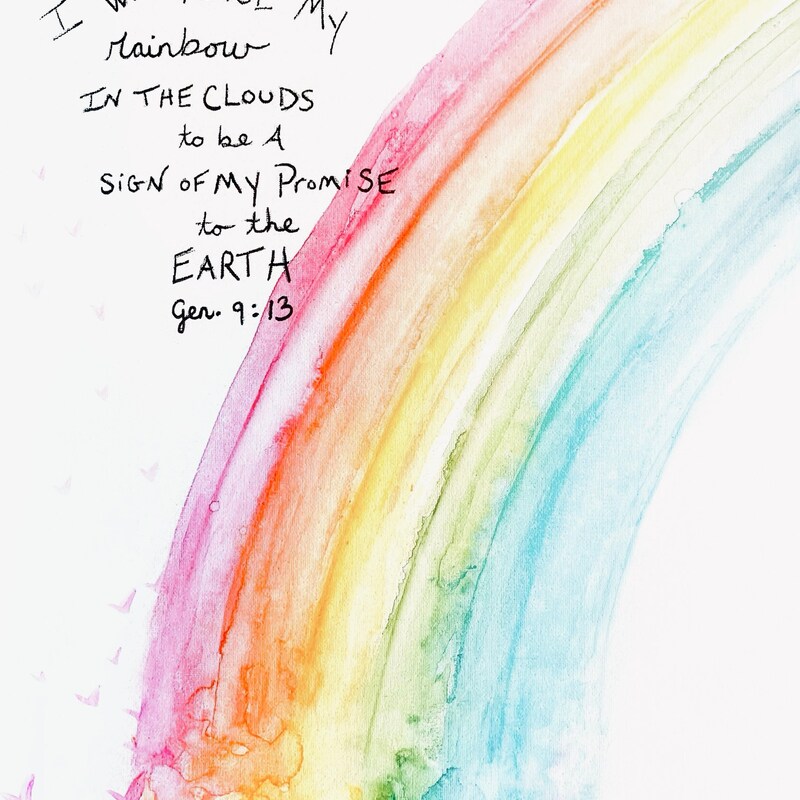 I My
rainbow
IN THE CLOUDS
to be A
SIGN OF MY PROMISE
to the
EARTH
Gen. 9:13